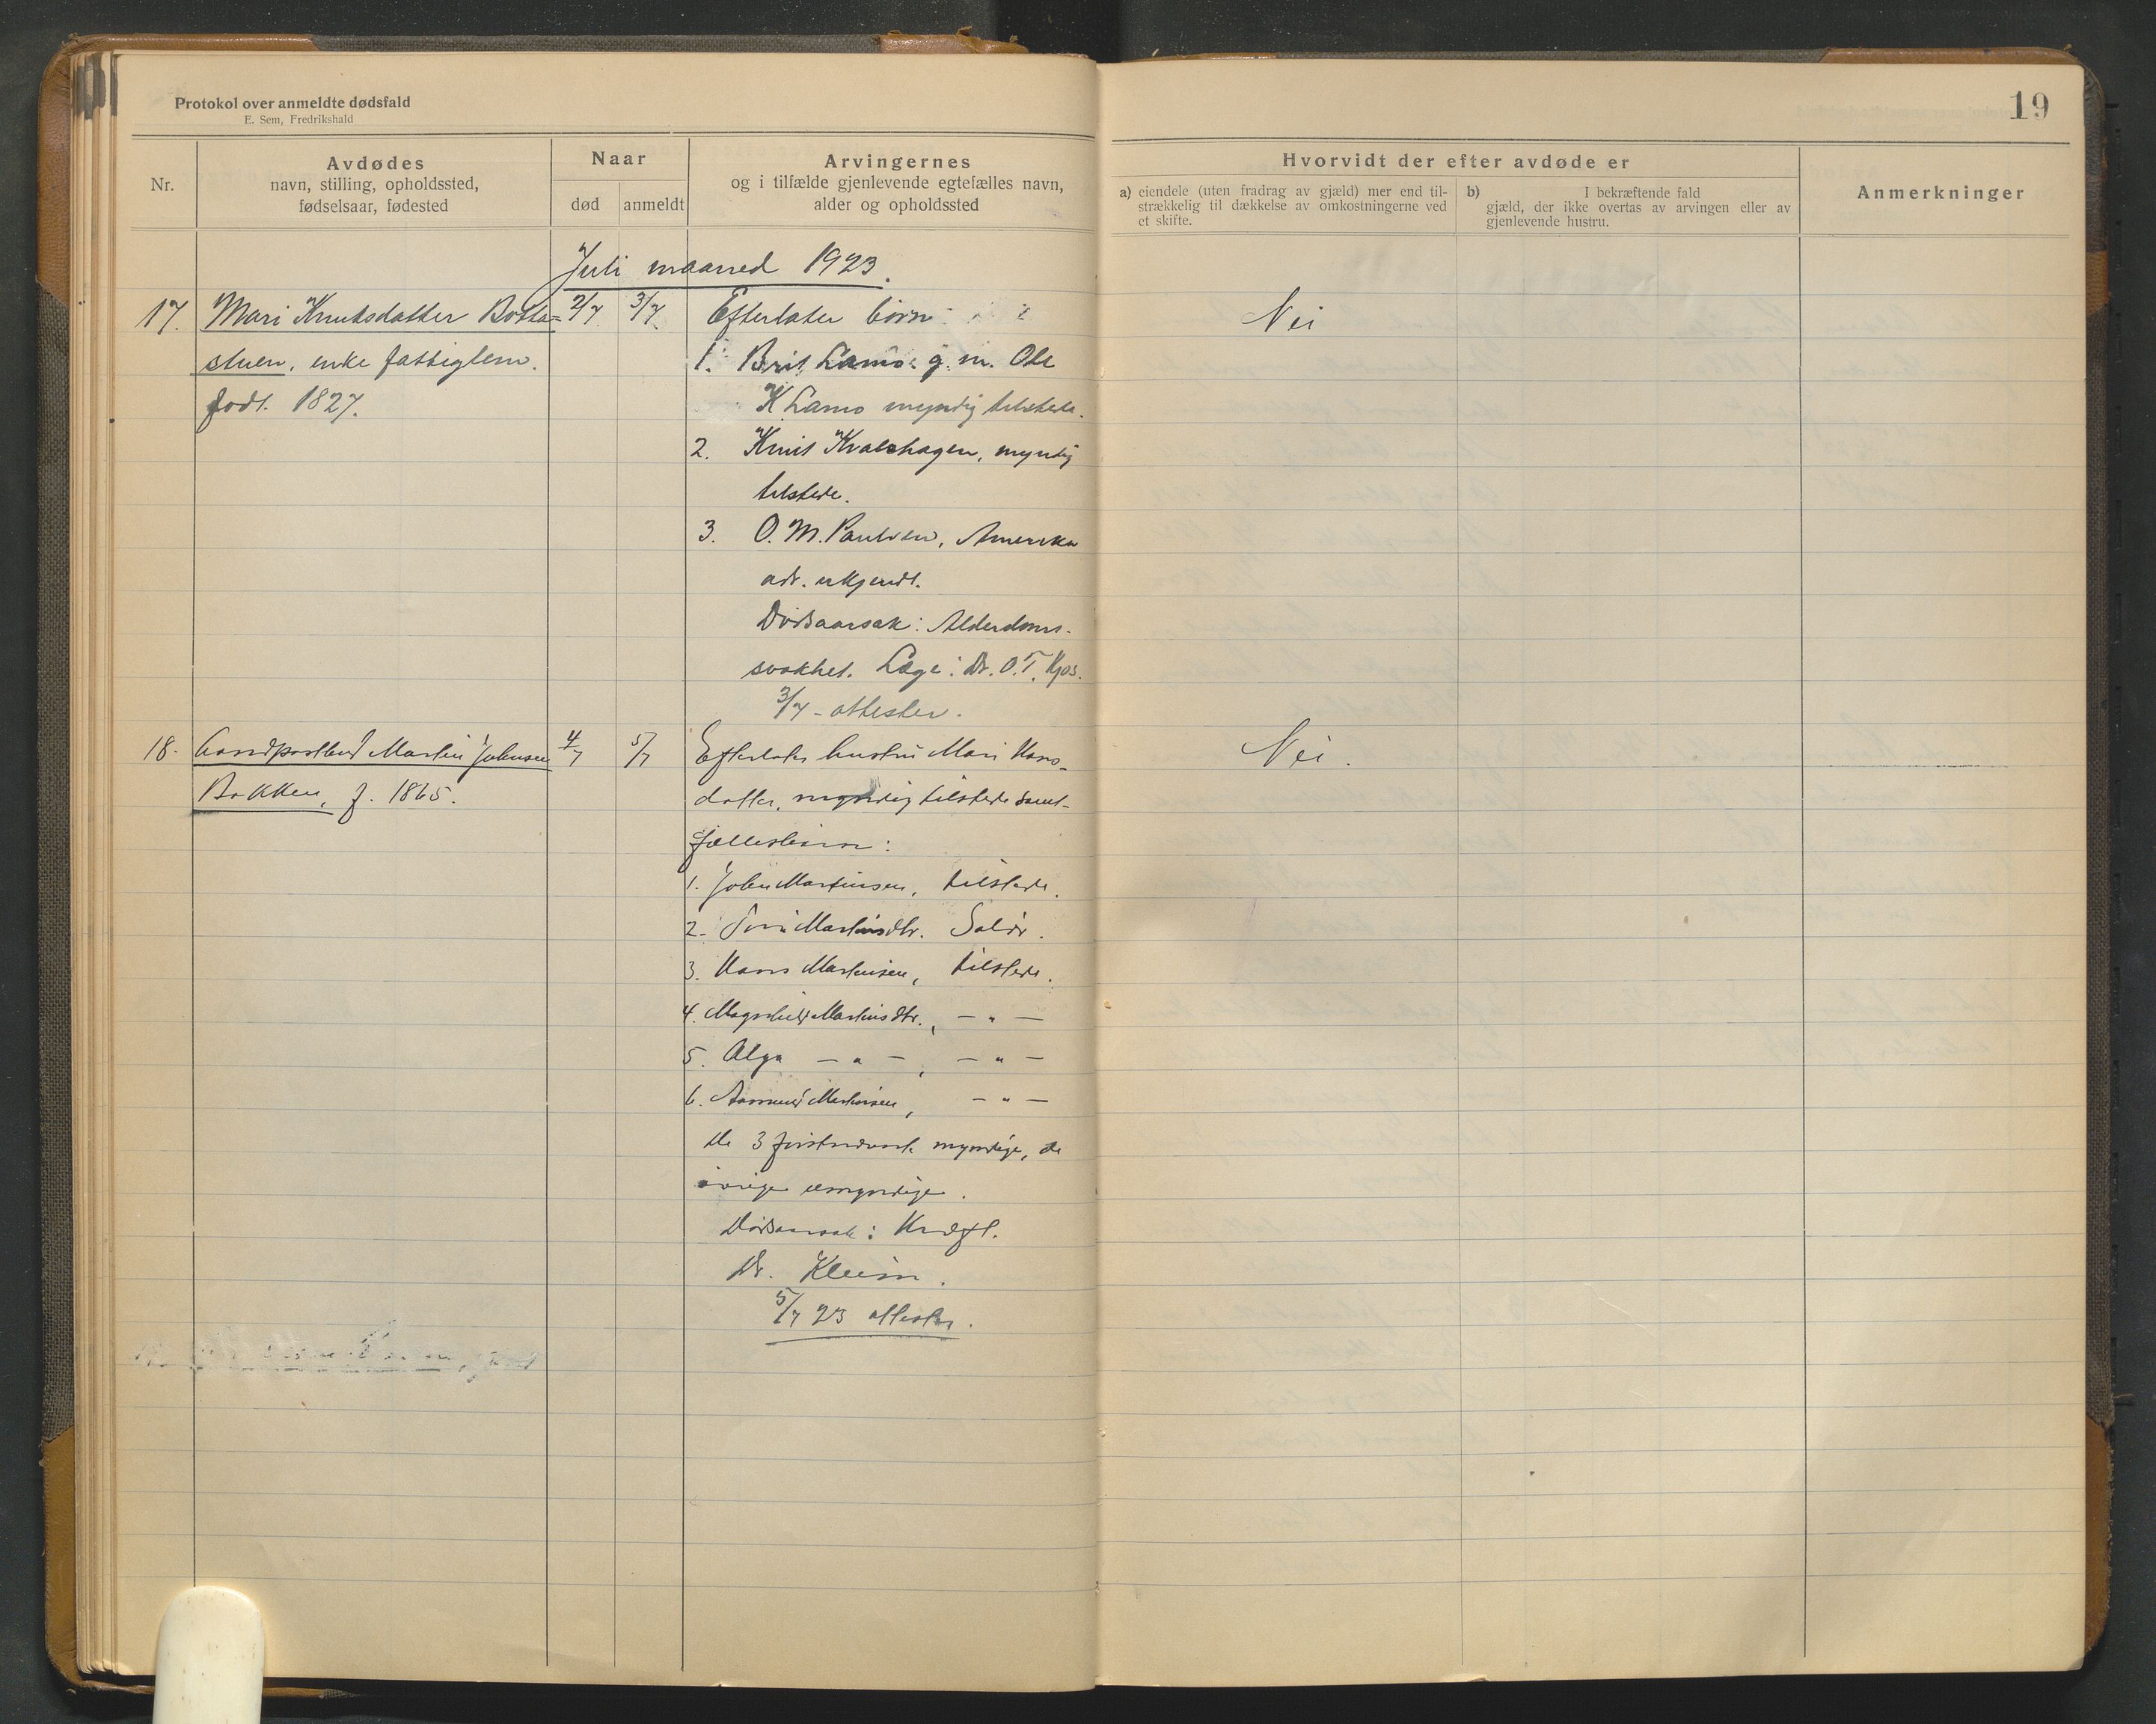 Protokol over anmeldte dødsfald
E. Sem, Fredrikshald
19
Nr.
Avdødes
navn, stilling, opholdssted,
fødselsaar, fødested
Naar
død
anmeldt
Arvingernes
og i tilfælde gjenlevende egtefælles navn,
alder og opholdssted
Hvorvidt der efter avdøde er
a) eiendele (uten fradrag av gjæld) mer end til-
strækkelig til dækkelse av omkostningerne ved
et skifte.
b) I bekræftende fald
gjæld, der ikke overtas av arvingen eller av
gjenlevende hustru.
Anmerkninger
Juli maaned 1923.
17. Mari Knutsdatter 2/7 3/7 Efterlater børn Nei
stuen, enke fattiglem. 1. Brit Lamo g. m. Ole
født 1827. K Lamo myndig tilstede.
2. Knut Kvalshagen, myndig
tilstede.
3. O. M. Paulsen, Amerika
adr. ukjendt.
Dødsaarsak: Alderdoms-
svakhet. Læge: Dr. O. T. Kjos.
3/7 - attester.
18. Landpostbud Martin Johnsen 4/7 5/7 Efterlater hustru Mari Hans- Nei.
Bakken, f. 1865. datter, myndig tilstede samt
fællesbørn:
1. John Martinsen, tilstede.
2. Martinsdtr. Solør.
3. Hans Martinsen, tilstede.
4. Magnhild Martinsdtr., - " -
5. Alga - " -, - " -
6. Aamund Martinsen, - " -
De 3 førstnævnte myndige, de
øvrige umyndige.
Dødsaarsak: Kræft.
Dr.
5/7 23 attester.